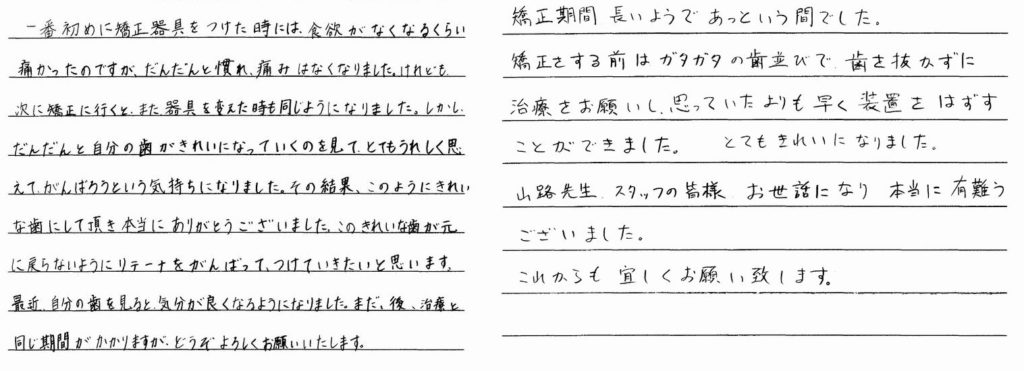 一番初めに矯正器具をつけた時には、食欲がなくなるくらい
痛かったのですが、だんだんと慣れ、痛みはなくなりました。けれども、
次に矯正に行くと、また器具を変えた時も同じようになりました。しかし、
だんだんと自分の歯がきれいになっていくのを見て、とてもうれしく思
えて、がんばろうという気持ちになりました。その結果、このようにきれい
な歯にして頂き本当にありがとうございました。このきれいな歯が元
に戻らないようにリテーナをがんばって、つけていきたいと思います。
最近、自分の歯を見ると、気分が良くなるようになりました。まだ、後、治療と
同じ期間がかかりますが、どうぞよろしくお願いいたします。
矯正期間 長いようであっという間でした。
矯正をする前はガタガタの歯並びで、歯を抜かずに
治療をお願いし、思っていたよりも早く装置をはずす
ことができました。 とてもきれいになりました。
山路先生、スタッフの皆様、お世話になり 本当に有難う
ございました。
これからも 宜しくお願い致します。